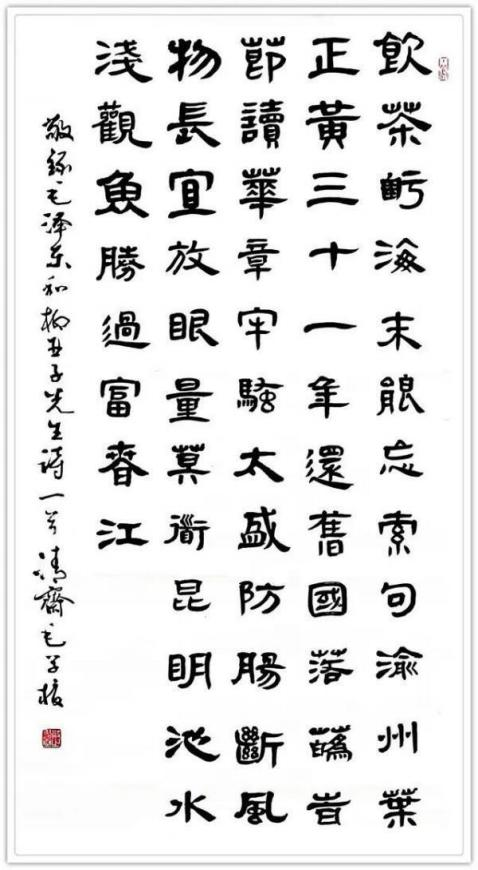 飲茶粵海未能忘索句渝州葉
正黃三十一年還舊國落蘤旹
節讀華章牢騷太盛防腸斷風
物長宜放眼量莫衜昆明池水
淺觀魚勝過富春江
敬録毛泽东和柳亞子先生诗一首 清齋毛